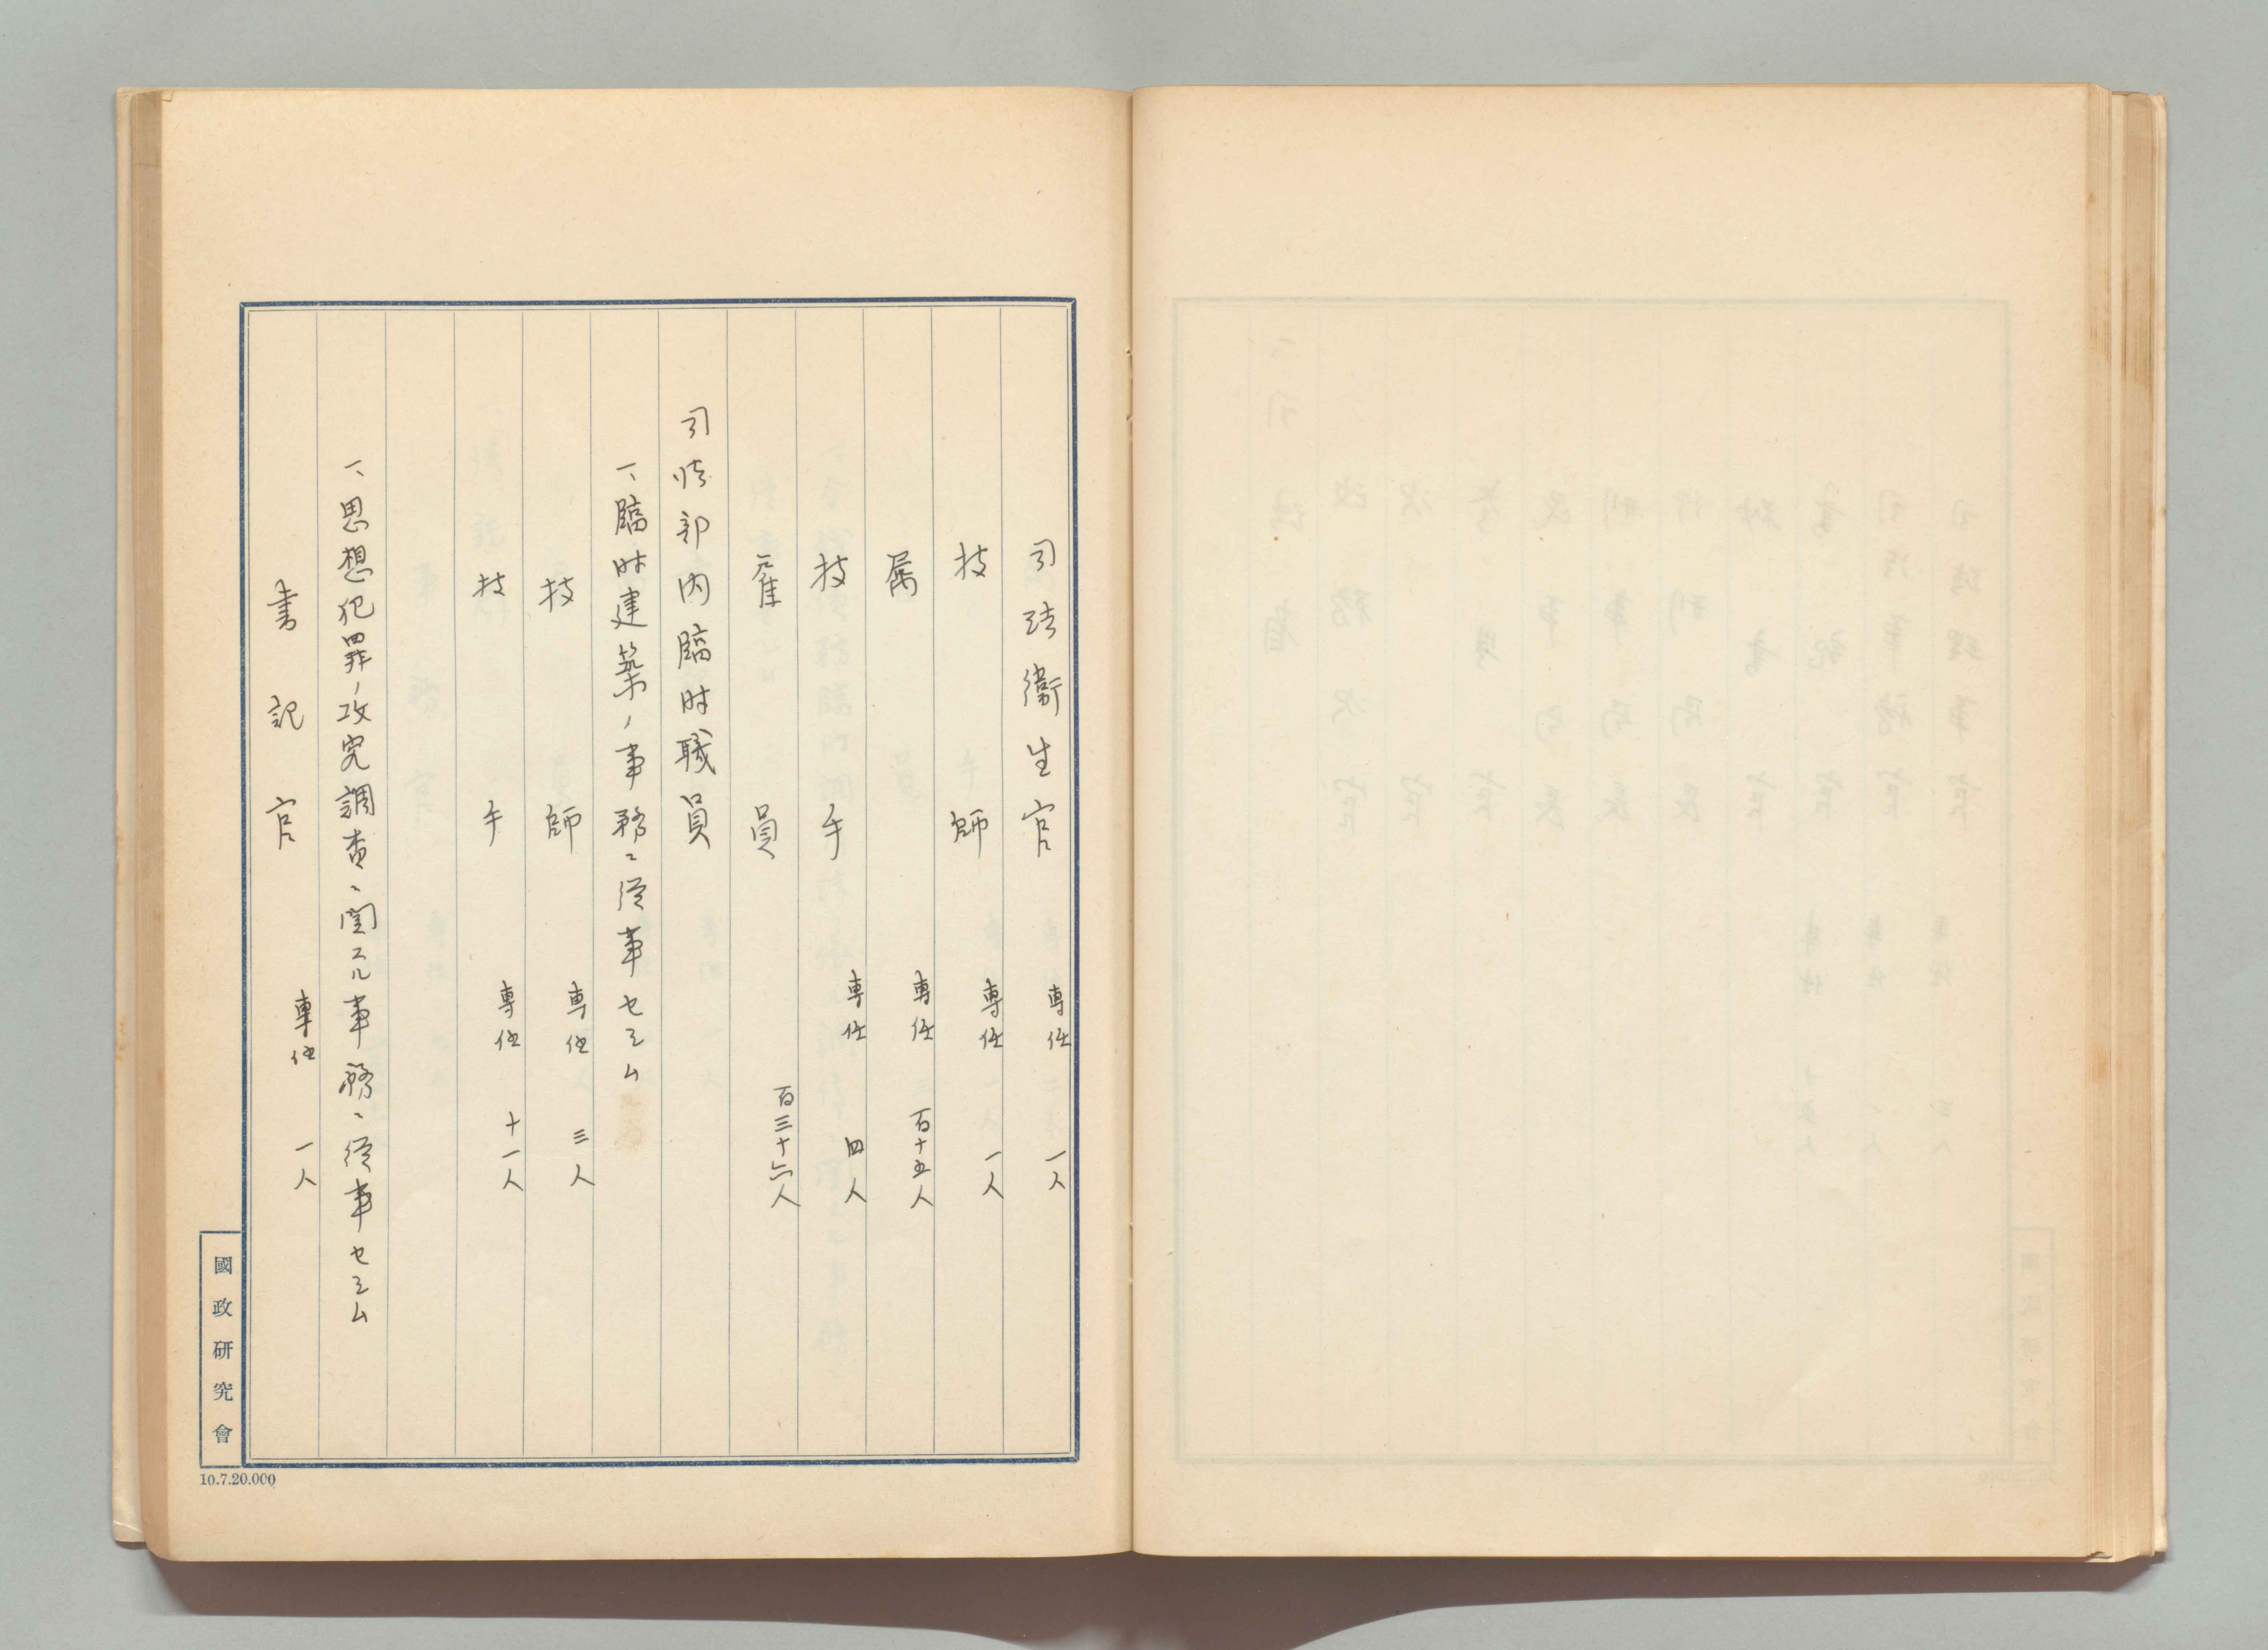 司法衛生官 専任 一人
技師 専任 一人
属 専任 百十五人
技手 専任 四人
雇員 百三十六人
司法部内臨時職員
一、臨時建築ノ事務ニ従事セシム
技師 専任 三人
技手 専任 十一人
一、思想犯罪ノ攻究調査ニ関スル事務ニ従事セシム
書記官 専任 一人
國政研究會
10.7.20.000